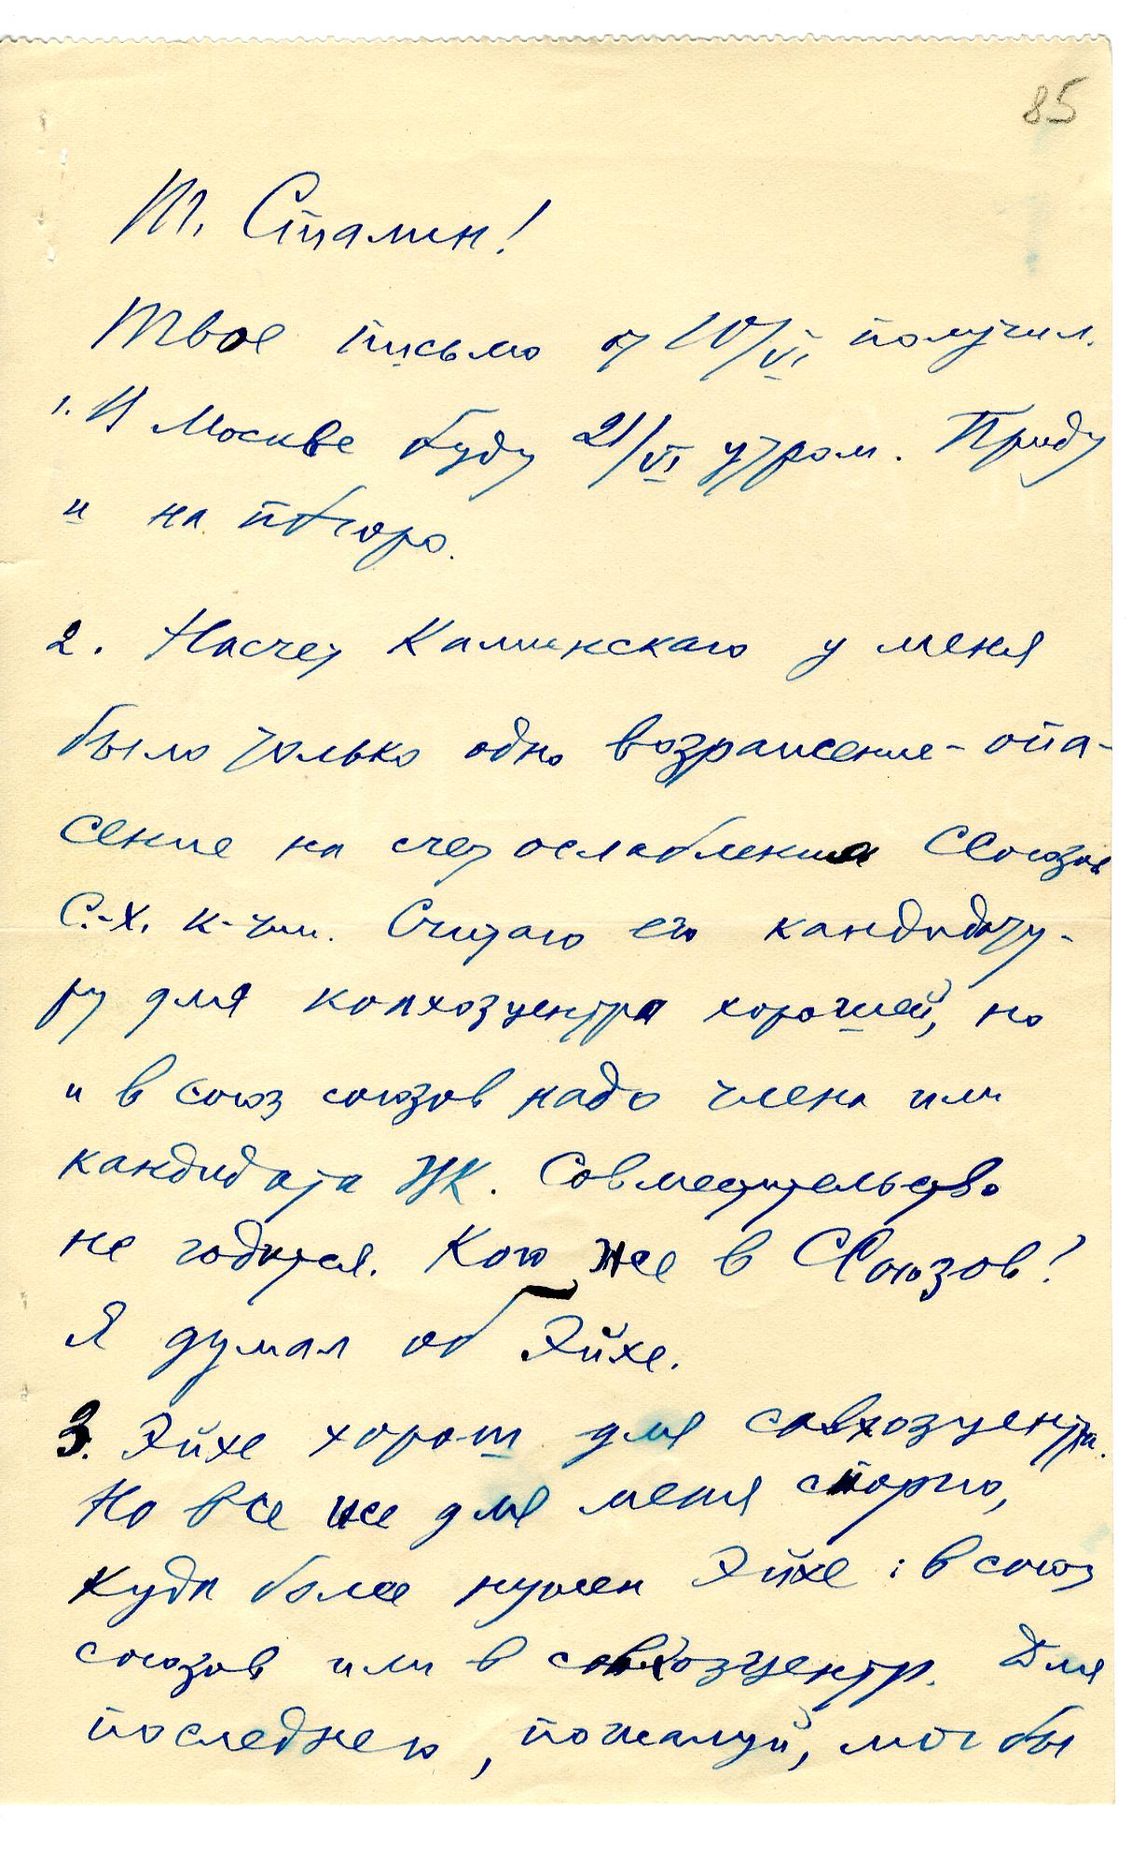 85
Т. Сталин!
Твое письмо от 10/VI получил.
1. В Москве буду 21/VI утром. Приду
и на ПБюро.
2. Насчет Каминскаго у меня
было только одно возражение – опа-
сение на счет ослабления ССоюзов
С.-Х. к-ции. Считаю его кандидату-
ру для колхозцентра хорошей, но
и в союз союзов надо члена или
кандидата ЦК. Совместительство
не годится. Кого же в ССоюзов?
Я думал об Эйхе.
3. Эйхе хорош для совхозцентра.
Но все же для меня спорно,
куда более нужен Эйхе: в союз
союзов или в совхозцентр. Для
последнего, пожалуй, мог бы